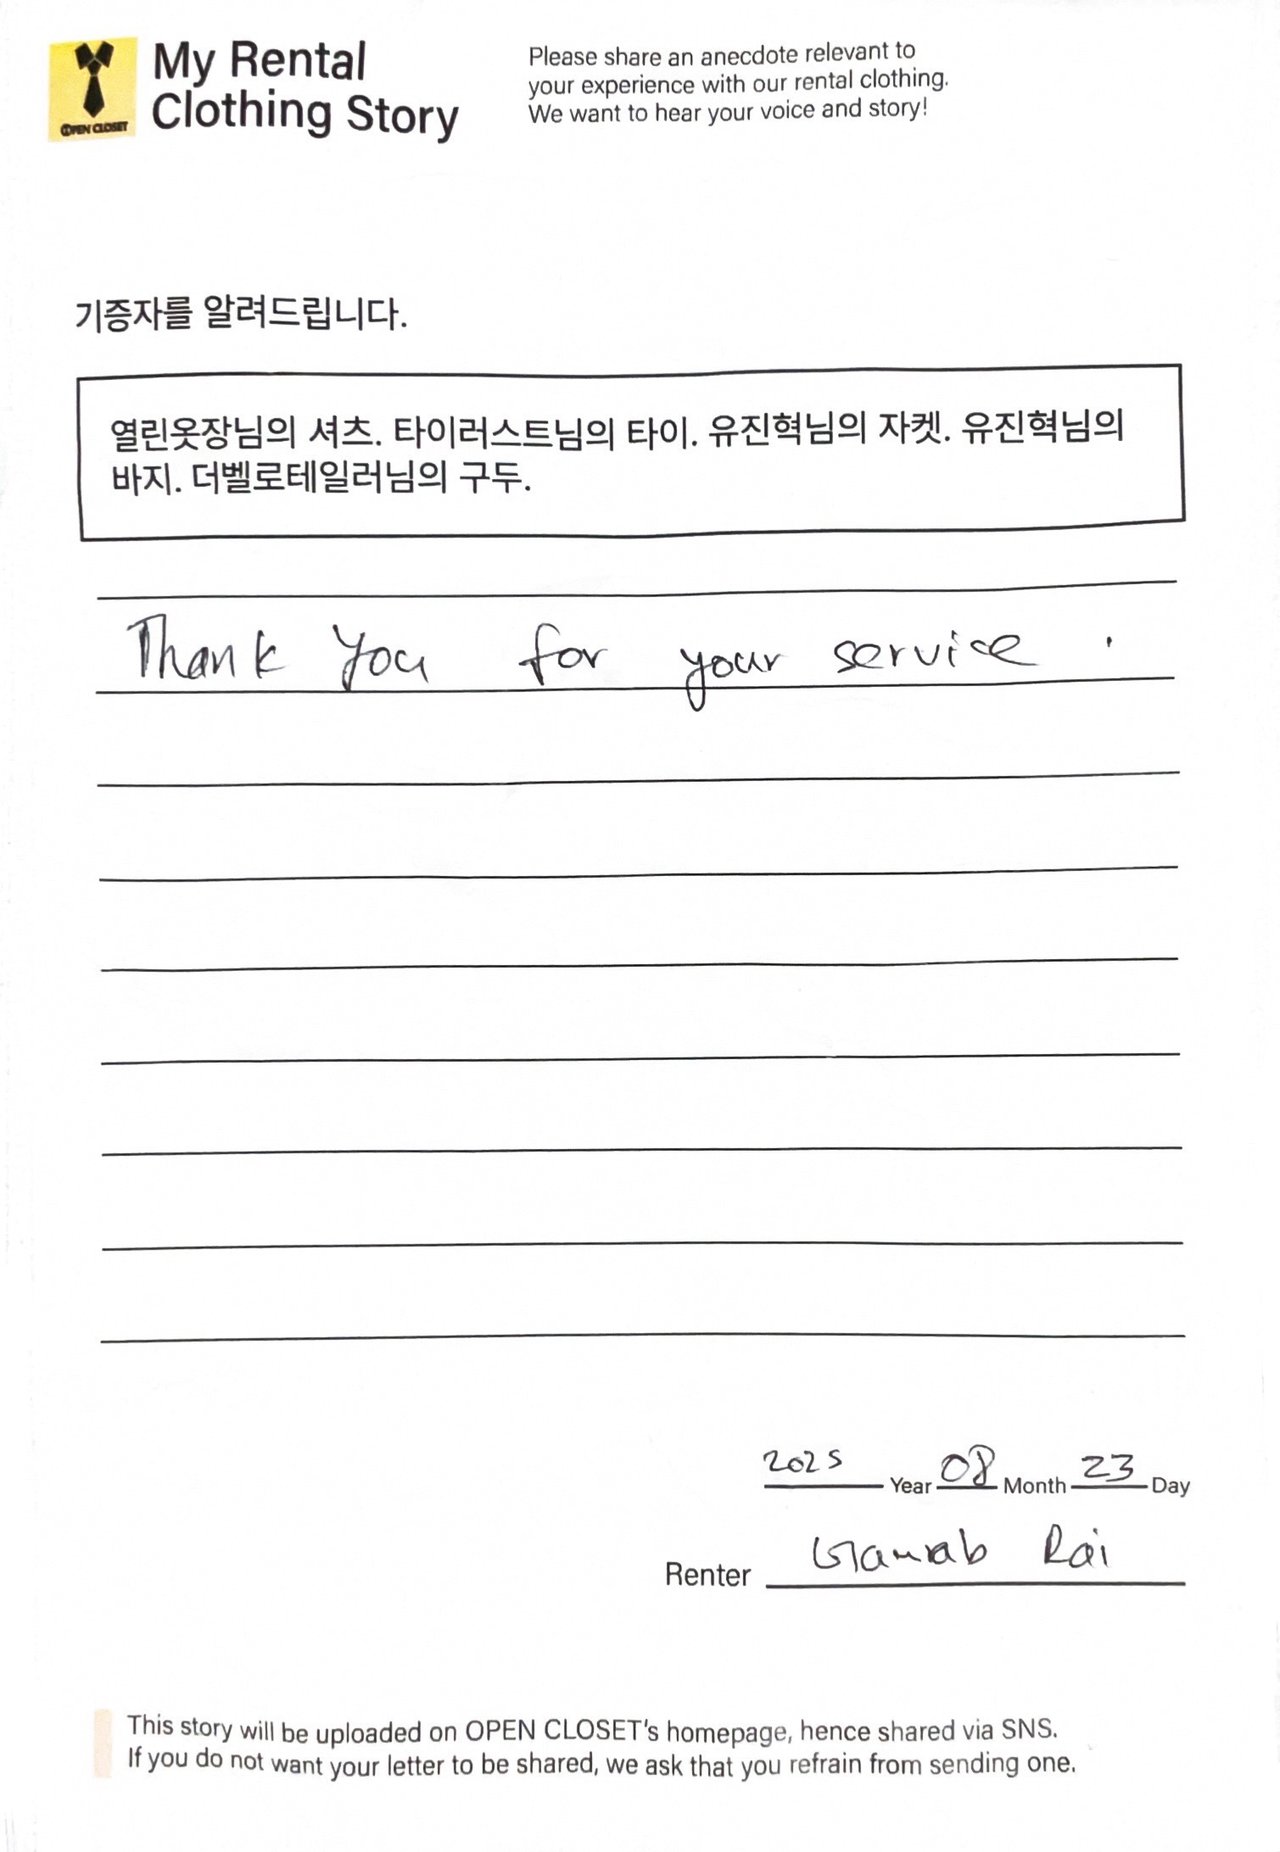 OPEN CLOSET
My Rental
Clothing Story
Please share an anecdote relevant to
your experience with our rental clothing.
We want to hear your voice and story!
기증자를 알려드립니다.
열린옷장님의 셔츠. 타이러스트님의 타이. 유진혁님의 자켓. 유진혁님의
바지. 더벨로테일러님의 구두.
Thank You for your service.
2025 Year 08 Month 23 Day
Renter Gaurab Rai
This story will be uploaded on OPEN CLOSET's homepage, hence shared via SNS.
If you do not want your letter to be shared, we ask that you refrain from sending one.